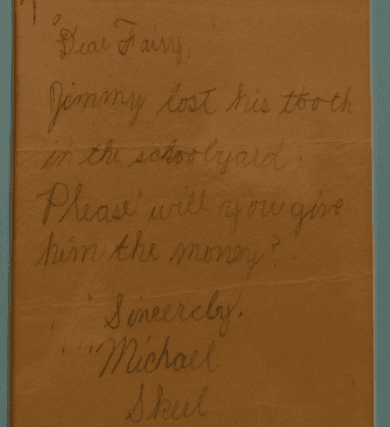 Dear Fairy,
Jimmy lost his tooth
in the schoolyard.
Please will you give
him the money?
Sincerely.
Michael